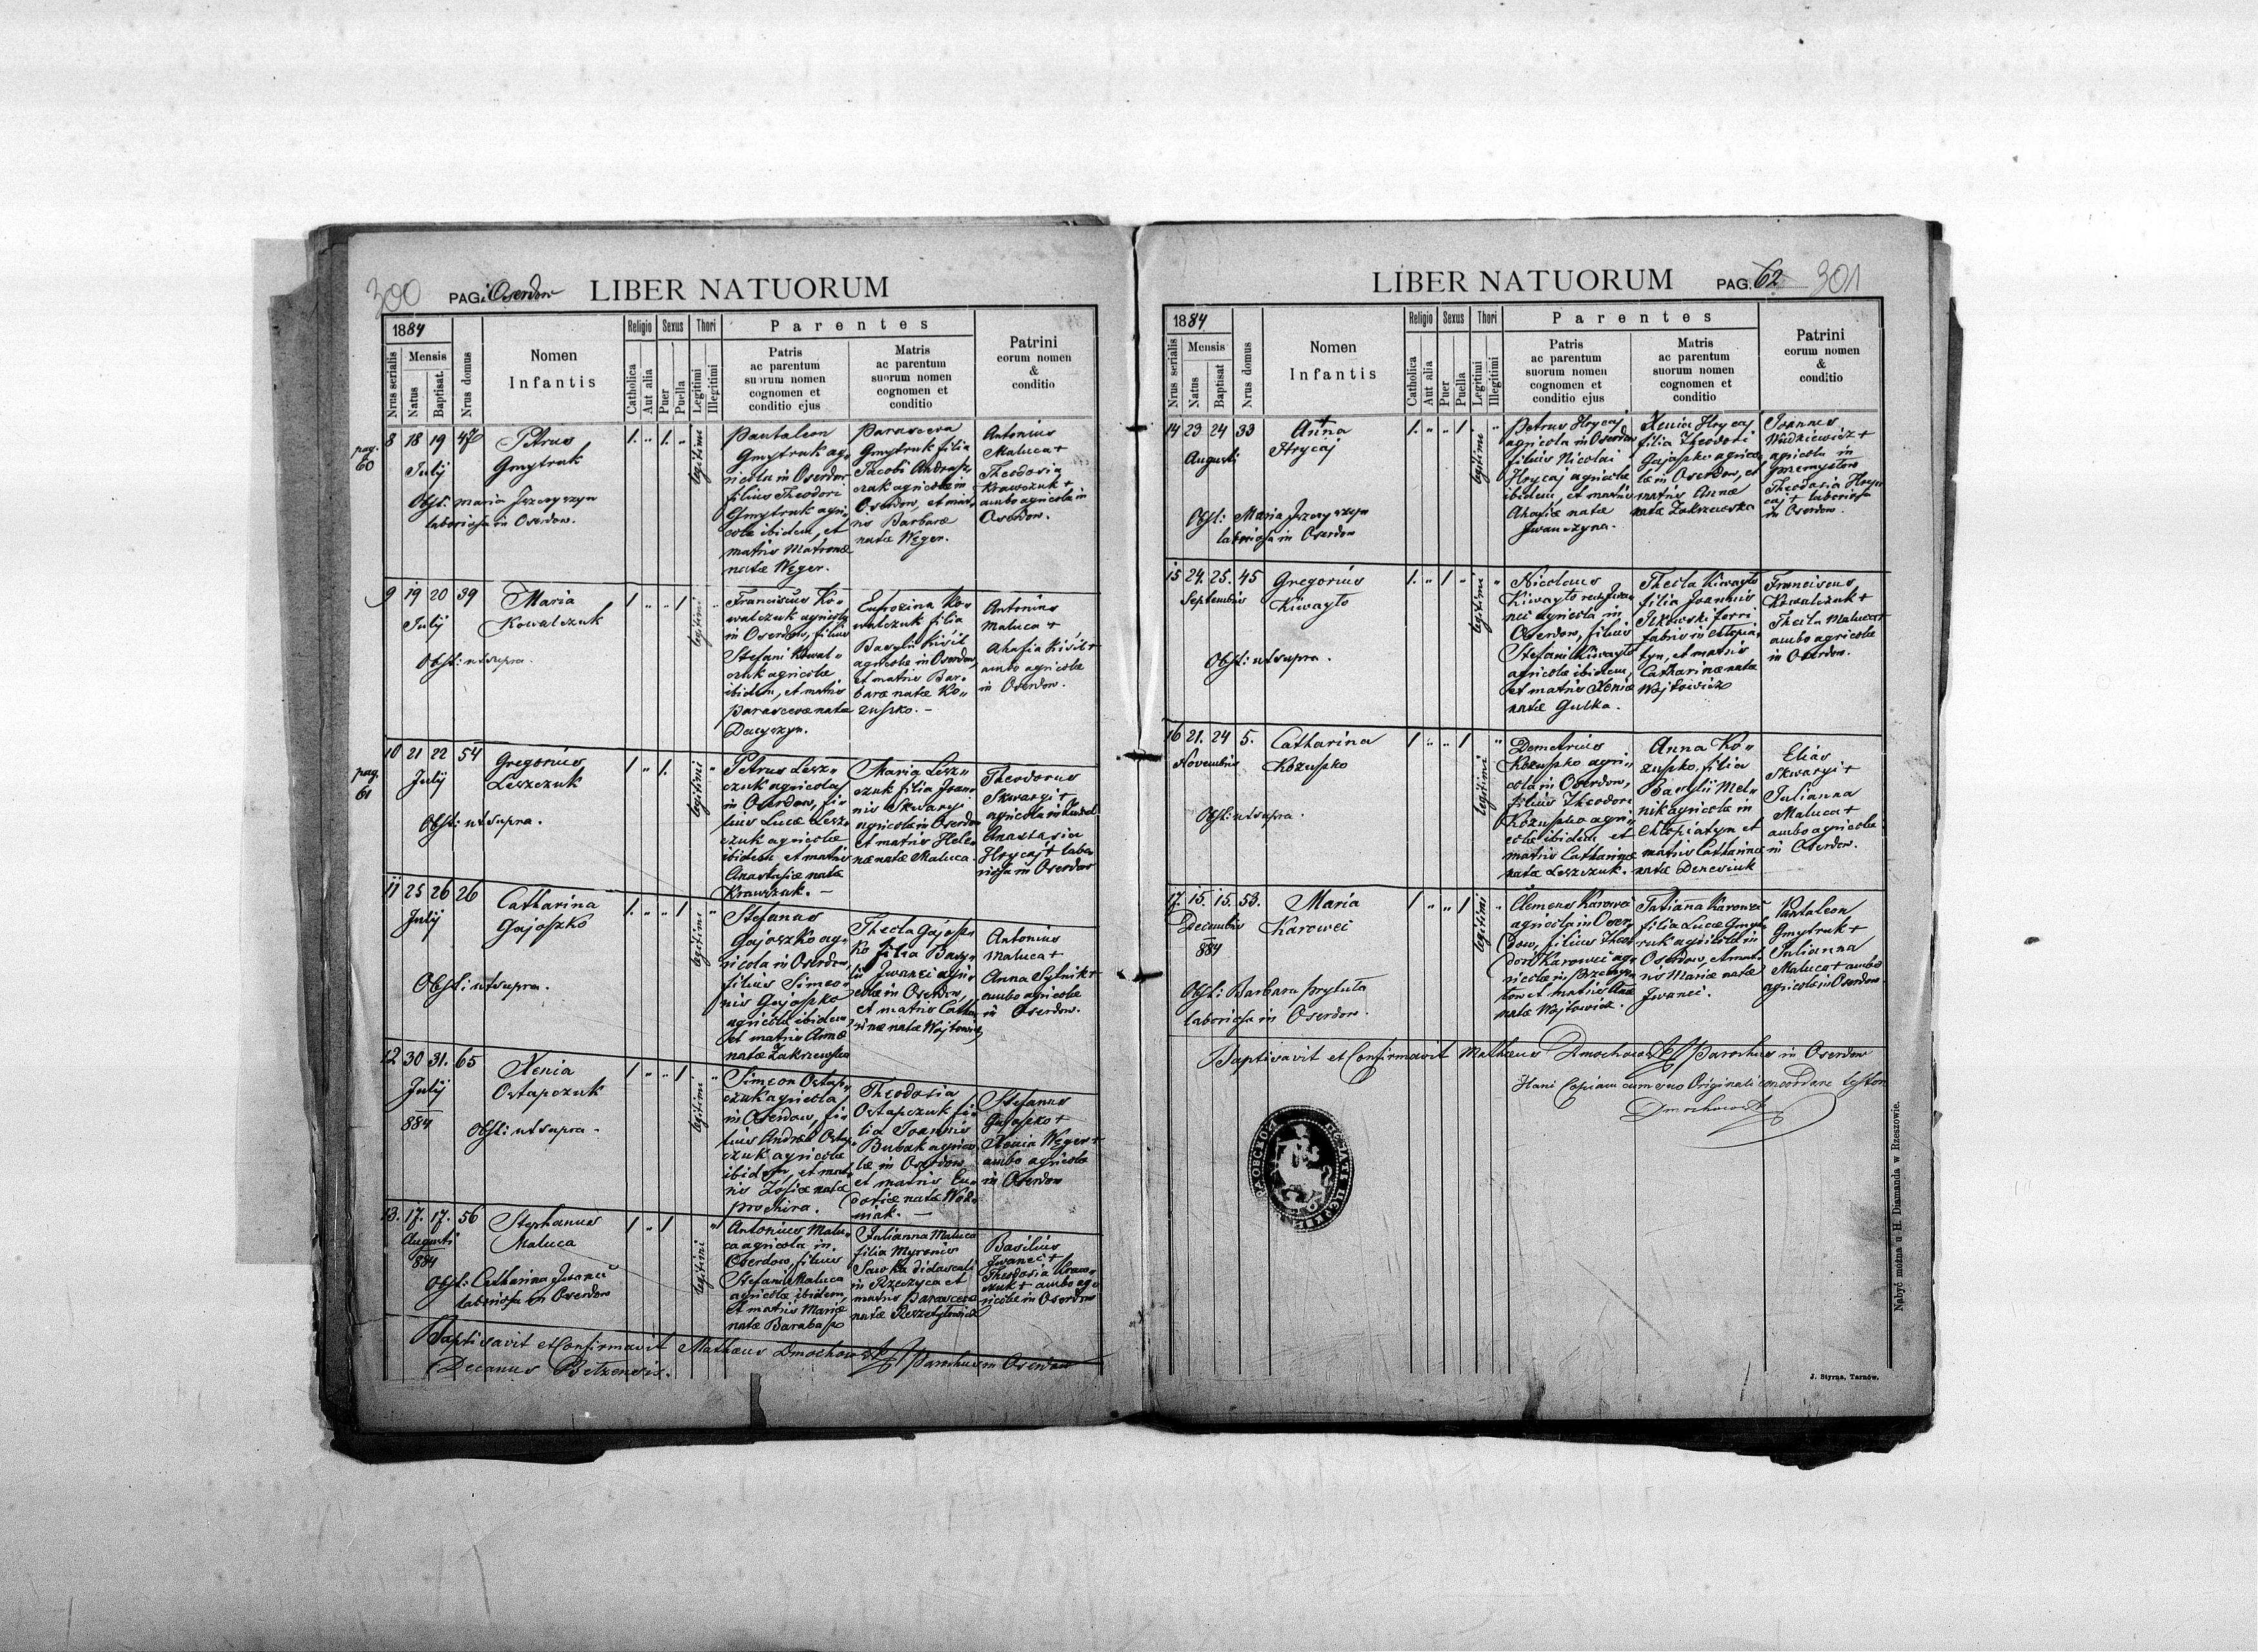 300 PAG: Oserdow LIBER NATUORUM
1884
Nrus serialis
Mensis
Natus
Baptisat.
Nrus domus
Nomen
Infantis
Religio
Catholica
Aut alia
Sexus
Puer
Puella
Thori
Legitimi
Illegitimi
Parentes
Patris
ac parentum
suorum nomen
cognomen et
conditio ejus
Matris
ac parentum
suorum nomen
cognomen et
conditio
Patrini
eorum nomen
&
conditio
pag.
60
8 18 19 47
July
Petrus
Gmytruk
Obst: Maria Jszczyszyn
laboriosa in Oserdow.
legitimi
Pantaleon
Gmytruk ag„
ricola in Oserdow
filius Theodori
Gmytruk agri„
colæ ibidem, et
matris Matronæ
natæ Węger.
Parasceva
Gmytruk filia
Jacobi Andrasz„
czuk agricolæ in
Oserdow, et mat„
ris Barbaræ
natæ Węger.
Antonius
Maluca +
Theodosia
Krawczuk +
ambo agricolæ in
Oserdow.
9 19 20 39
July
Maria
Kowalczuk
Obst: ut supra.
legitimi
Franciscus Ko„
walczuk agricola
in Oserdow, filius
Stefani Kowal„
czuk agricolæ
ibidem, et matris
Parascevæ natæ
Dacyszyn.
Eufrozina Ko„
walczuk filia
Basylii Kisil
agricolæ in Oserdow,
et matris Bar„
baræ natæ Ko„
zuszko. –
Antonius
Maluca +
Ahafia Kisil +
ambo agricolæ
in Oserdow.
pag.
61
10 21 22 54
July
Gregorius
Leszczuk
Obst: ut supra.
legitimi
Petrus Lesz„
czuk agricola
in Oserdow, fi„
lius Lucæ Lesz„
czuk agricolæ
ibidem et matris
Anastasiæ natæ
Krawczuk. –
Maria Lesz„
czuk filia Joan„
nis Skwaryj
agricolæ in Oserdow
et matris Hele„
næ natæ Maluca.
Theodorus
Skwaryj +
agricola in
Anastasia
Hrycaj + labo
riosa in Oserdow
11 25 26 26
July
Catharina
Gajoszko
Obst: ut supra.
legitimi
Stefanus
Gajoszko ag„
ricola in Oserdow,
filius Simeo„
nis Gajoszko
agricolæ ibidem,
et matris Annæ
natæ Zakrzewska
Thecla Gajosz„
ko filia Basy„
lii Iwanci agri„
colæ in Oserdow,
et matris Catha„
rinæ natæ Wojtowicz
Antonius
Maluca +
Anna Sytnik +
ambo agricolæ
in Oserdow.
12 30 31. 65
July
884
Xenia
Ostapczuk
Obst: ut supra.
legitimi
Simeon Ostap„
czuk agricola
in Oserdow, fi„
lius Andreæ Ostap„
czuk agricolæ
ibidem, et mat„
ris Zofiæ natæ
Prochira.
Theodosia
Ostapczuk fi„
lia Joannis
Bubak agrico„
læ in Oserdow
et matris Eu„
dociæ natæ Woź„
niak. –
Stefanus
Gajoszko +
Xenia Węger +
ambo agricolæ
in Oserdow
13. 17. 17. 56
Augusti
884
Stephanus
Maluca
Obst: Catharina Iwanci
laboriosa in Oserdow
legitimi
Antonius Malu„
ca agricola in
Oserdow, filius
Stefani Maluca
agricolæ ibidem,
et matris Mariæ
natæ Barabasz
Julianna Maluca
filia Myronis
Sawka didascali
in Rzeczyca et
matris Parascevæ
natæ Reszetyłowicz
Basilius
Iwanci +
Theodosia Kraw„
czuk + ambo ag„
ricolæ in Oserdow
Baptisavit et Confirmavit Mathæus Dmochowski Parochus in Oserdow
Decanus Bełzensis.
LIBER NATUORUM PAG. 62 301
1884
Nrus serialis
Mensis
Natus
Baptisat
Nrus domus
Nomen
Infantis
Religio
Catholica
Aut alia
Sexus
Puer
Puella
Thori
Legitimi
Illegitimi
Parentes
Patris
ac parentum
suorum nomen
cognomen et
conditio ejus
Matris
ac parentum
suorum nomen
cognomen et
conditio
Patrini
eorum nomen
&
conditio
14 23 24 33
Augusti
+
Anna
Hrycaj
Obst: Maria Jszczyszyn
laboriosa in Oserdow
legitimi
Petrus Hrycaj
agricola in Oserdow
filius Nicolai
Hrycaj agricolæ
ibidem, et matris
Ahafiæ natæ
Iwanczyna.
Xenia Hrycaj
filia Theodori
Gajoszko agrico„
læ in Oserdow, et
matris Annæ
natæ Zakrzewska
Joannes
Wudkiewicz +
agricola in
Przemysłow
Theodosia Hry„
caj + laboriosa
in Oserdow.
15 24. 25. 45
Septembris
Gregorius
Kiwayło
Obst: ut supra.
legitimi
Nicolaus
Kiwayło recte Iwa„
nci agricola in
Oserdow, filius
Stefani Kiwayło
agricolæ ibidem,
et matris Xeniæ
natæ Gulka.
Thecla Kiwayło
filia Joannis
Ilkowski ferri
fabris in Chłopia„
tyn, et matris
Catharinæ natæ
Wojtowicz
Franciscus
Kowalczuk +
Thecla Maluca +
ambo agricolæ
in Oserdow.
16 21. 24 5.
Novembris
Catharina
Kozuszko
Obst: ut supra.
legitimi
Demetrius
Kozuszko agri„
cola in Oserdow,
filius Theodori
Kozuszko agri„
colæ ibidem et
matris Catharinæ
natæ Leszczuk.
Anna Ko„
zuszko, filia
Basylii Mel„
nik agricolæ in
Chłopiatyn et
matris Catharinæ
natæ Denesiuk
Elias
Skwaryj +
Julianna
Maluca +
ambo agricolæ
in Oserdow.
17. 15. 15. 53.
Decembris
884
Maria
Karowci
Obst: Barbara Prytuła
laboriosa in Oserdow.
legitimi
Clemens Karowci
agricola in Oser„
dow, filius Theo„
dori Karowci ag„
ricolæ in
et matris
natæ Wojtowicz.
Tatianna Karowci
filia Lucæ Gmyt„
ruk agricolæ in
Oserdow, et mat„
ris Mariæ natæ
Iwanci.
Pantaleon
Gmytruk +
Julianna
Maluca + ambo
agricolæ in Oserdow
Baptisavit et Confirmavit Mathæus Dmochowski Parochus in Oserdow
Hanc Copiam cum suo Originali concordare testor
Dmochowski
Nabyć można u H. Diamanda w Rzeszowie.
J. Styrna, Tarnów.